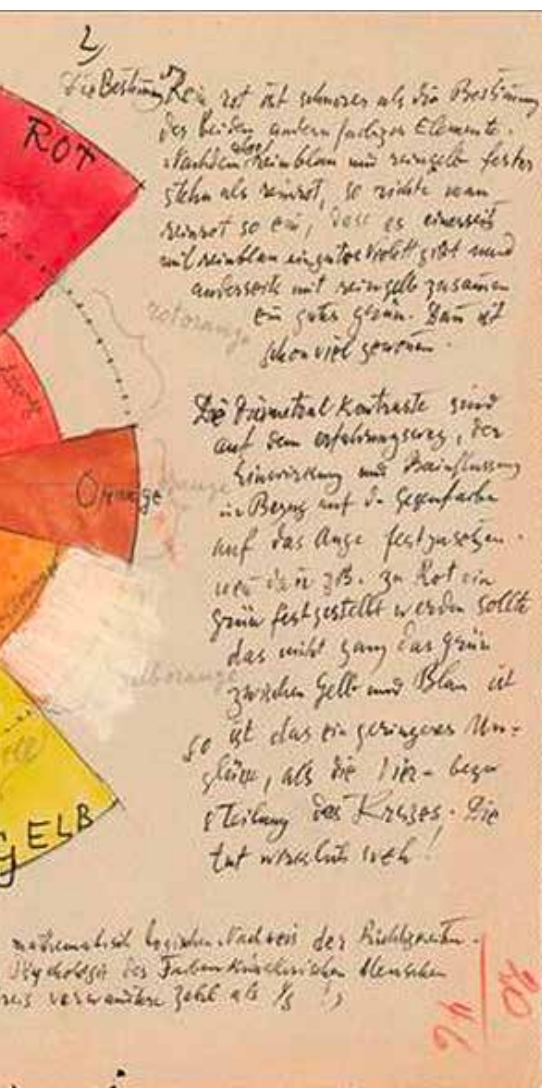 2)
Die Bestimung Rein rot ist schwerer als die Bestimung
der beiden andern farbigen Elemente.
Nachdem aber reinblau und reingelb fester
stehn als reinrot, so richte man
reinrot so ein, dass es einerseits
mit reinblau ein gutes violett gibt und
anderseits mit reingelb zusamen
ein gutes
schon viel gewonen.
Die Diametral Kontraste sind
auf dem erfahrungsweg, der
Einwirkung und Beinflussung
in Bezug auf die Gegenfarbe
auf das Auge festzusetzen.
wen dan zB. zu Rot ein
grün festgestellt werden sollte
das nicht ganz das grün
zwischen Gelb und Blau ist
so ist das ein geringeres Un-
glück, als die
teilung des Kreises. Die
tut wirklich weh!
mathematisch logischen Nachweis der
Psychologie des Farbenkünstlerischen Menschen
verwandte Zahl als
ROT
rotorange
Orange
orange
gelborange
GELB